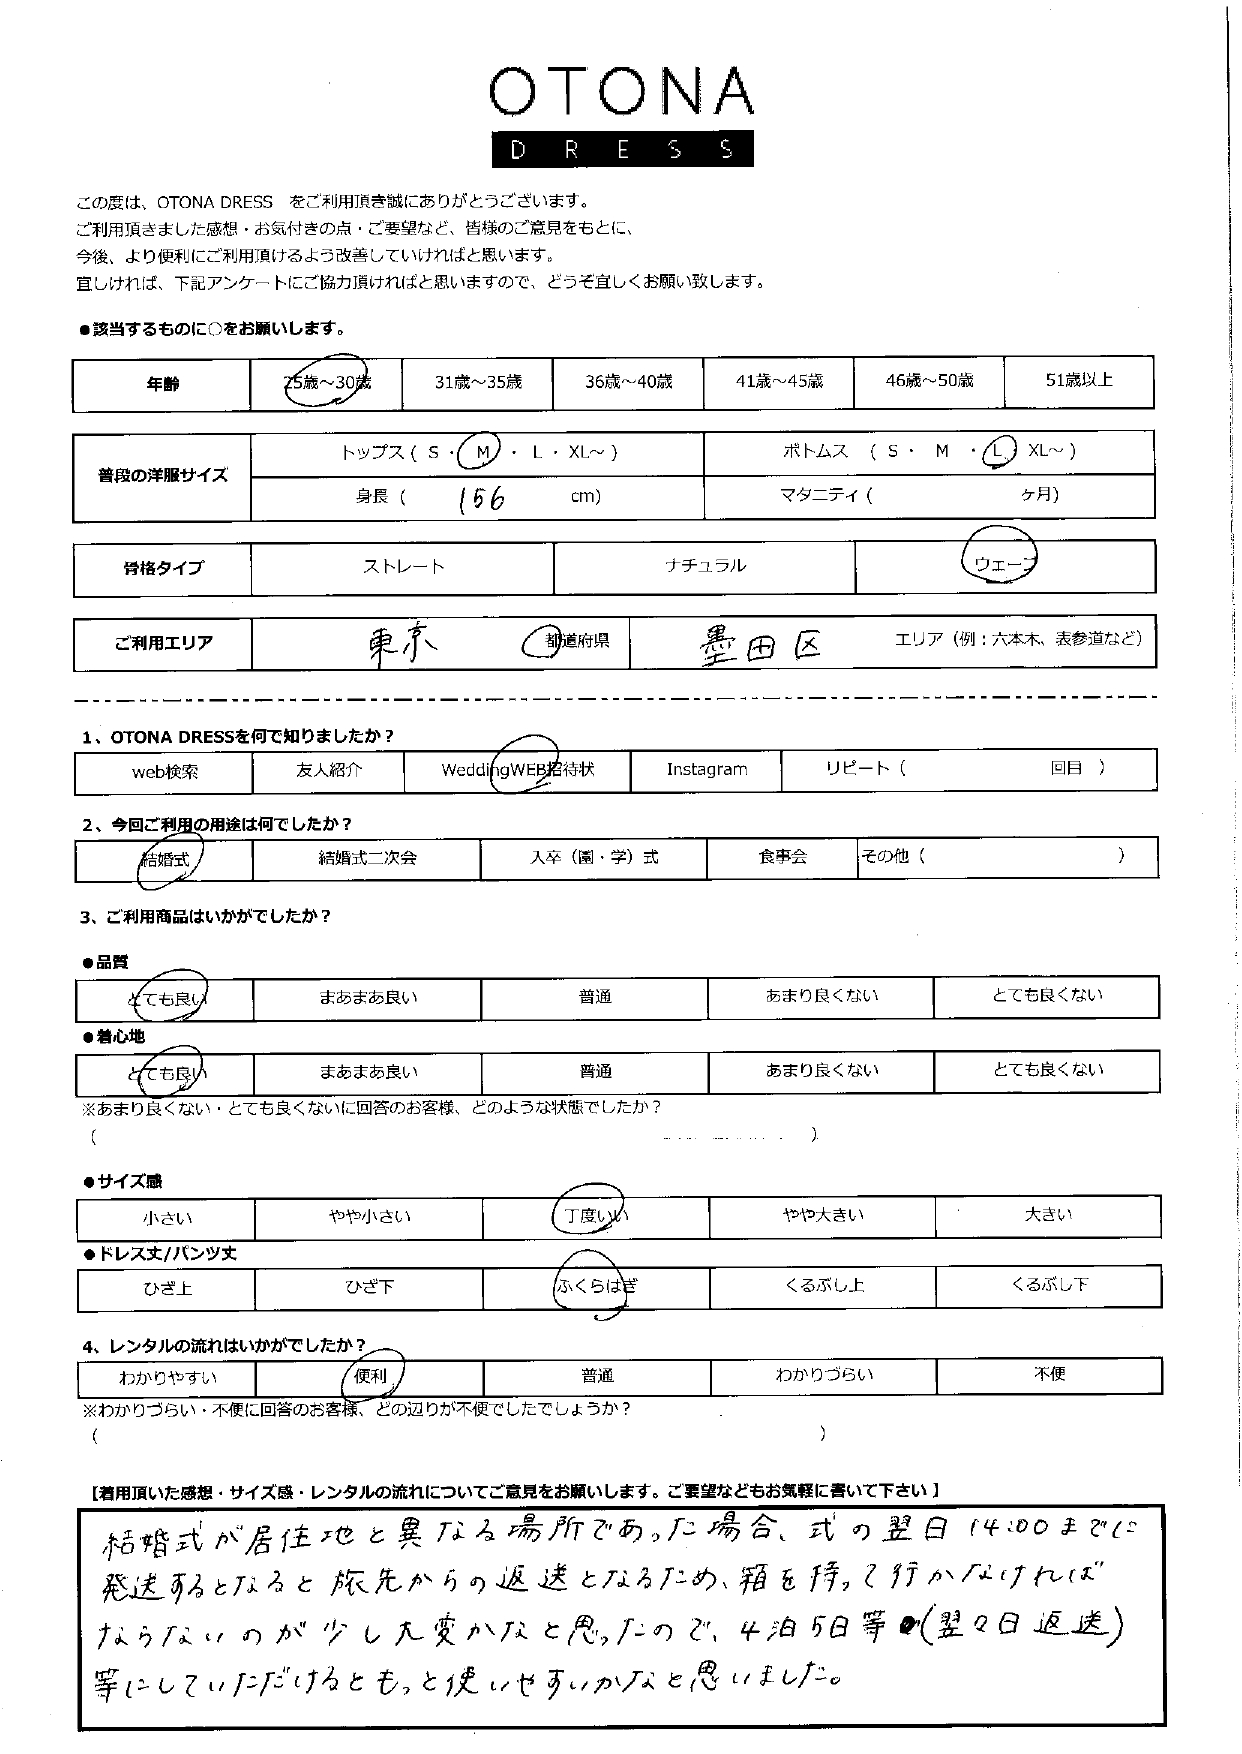 OTONA
DRESS
この度は、OTONA DRESS　をご利用頂き誠にありがとうございます。
ご利用頂きました感想・お気付きの点・ご要望など、皆様のご意見をもとに、
今後、より便利にご利用頂けるよう改善していければと思います。
宜しければ、下記アンケートにご協力頂ければと思いますので、どうぞ宜しくお願い致します。
●該当するものに○をお願いします。
年齢 25歳～30歳 31歳～35歳 36歳～40歳 41歳～45歳 46歳～50歳 51歳以上
普段の洋服サイズ トップス ( S ・ M ・ L ・ XL～ ) ボトムス ( S ・ M ・ L XL～ )
身長 ( 156 cm) マタニティ ( ヶ月)
骨格タイプ ストレート ナチュラル ウェーブ
ご利用エリア 東京 都道府県 墨田区 エリア（例：六本木、表参道など）
1、OTONA DRESSを何で知りましたか？
web検索 友人紹介 WeddingWEB招待状 Instagram リピート（ 回目 ）
2、今回ご利用の用途は何でしたか？
結婚式 結婚式二次会 入卒（園・学）式 食事会 その他（ ）
3、ご利用商品はいかがでしたか？
●品質
とても良い まあまあ良い 普通 あまり良くない とても良くない
●着心地
とても良い まあまあ良い 普通 あまり良くない とても良くない
※あまり良くない・とても良くないに回答のお客様、どのような状態でしたか？
( )
●サイズ感
小さい やや小さい 丁度いい やや大きい 大きい
●ドレス丈/パンツ丈
ひざ上 ひざ下 ふくらはぎ くるぶし上 くるぶし下
4、レンタルの流れはいかがでしたか？
わかりやすい 便利 普通 わかりづらい 不便
※わかりづらい・不便に回答のお客様、どの辺りが不便でしたでしょうか？
( )
【着用頂いた感想・サイズ感・レンタルの流れについてご意見をお願いします。ご要望などもお気軽に書いて下さい】
結婚式が居住地と異なる場所であった場合、式の翌日14:00までに
発送するとなると旅先からの返送となるため、箱を持って行かなければ
ならないのが少し大変かなと思ったので、4泊5日等(翌々日返送)
等にしていただけるともっと使いやすいかなと思いました。